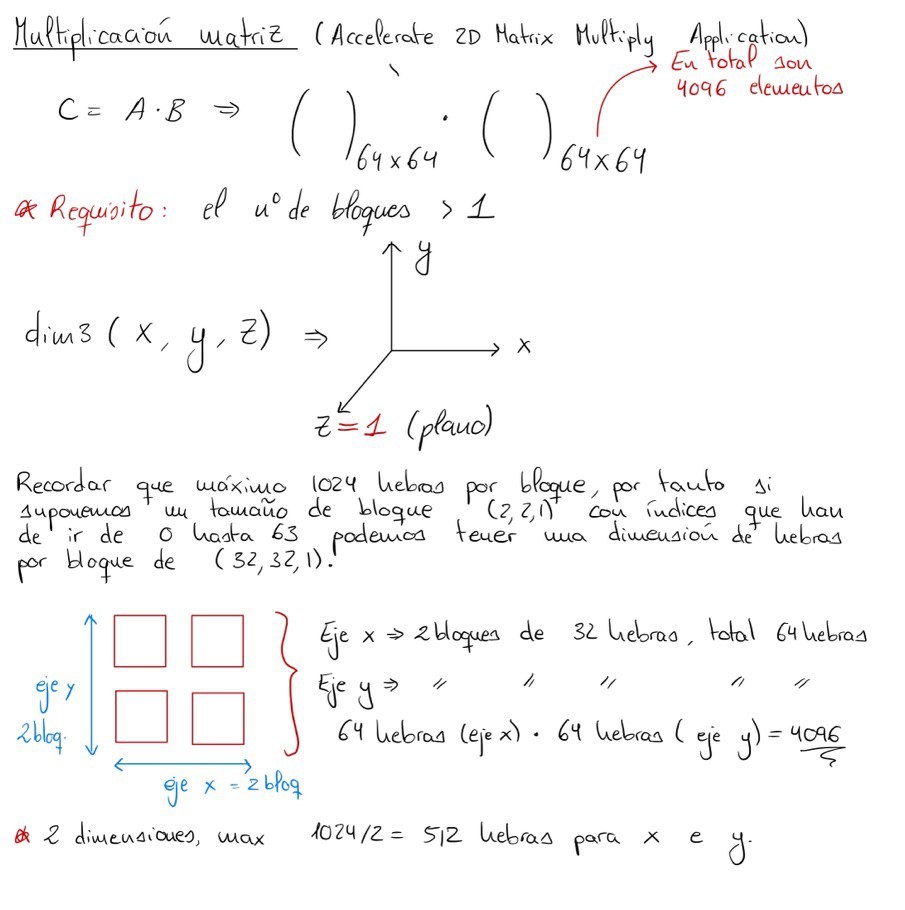 Multiplicación matriz (Accelerate 2D Matrix Multiply Application)
En total son
4096 elementos
C = A · B ⇒ ( )64x64 · ( )64x64
* Requisito: el nº de bloques > 1
y
dim3 ( x, y, z) ⇒
x
z = 1 (plano)
Recordar que máximo 1024 hebras por bloque, por tanto si
suponemos un tamaño de bloque (2,2,1) con índices que han
de ir de 0 hasta 63 podemos tener una dimensión de hebras
por bloque de (32,32,1).
Eje x ⇒ 2 bloques de 32 hebras, total 64 hebras
eje y
2 bloq.
Eje y ⇒ " " " " "
64 hebras (eje x) · 64 hebras ( eje y) = 4096
eje x = 2 bloq
* 2 dimensiones, max 1024/2 = 512 hebras para x e y.